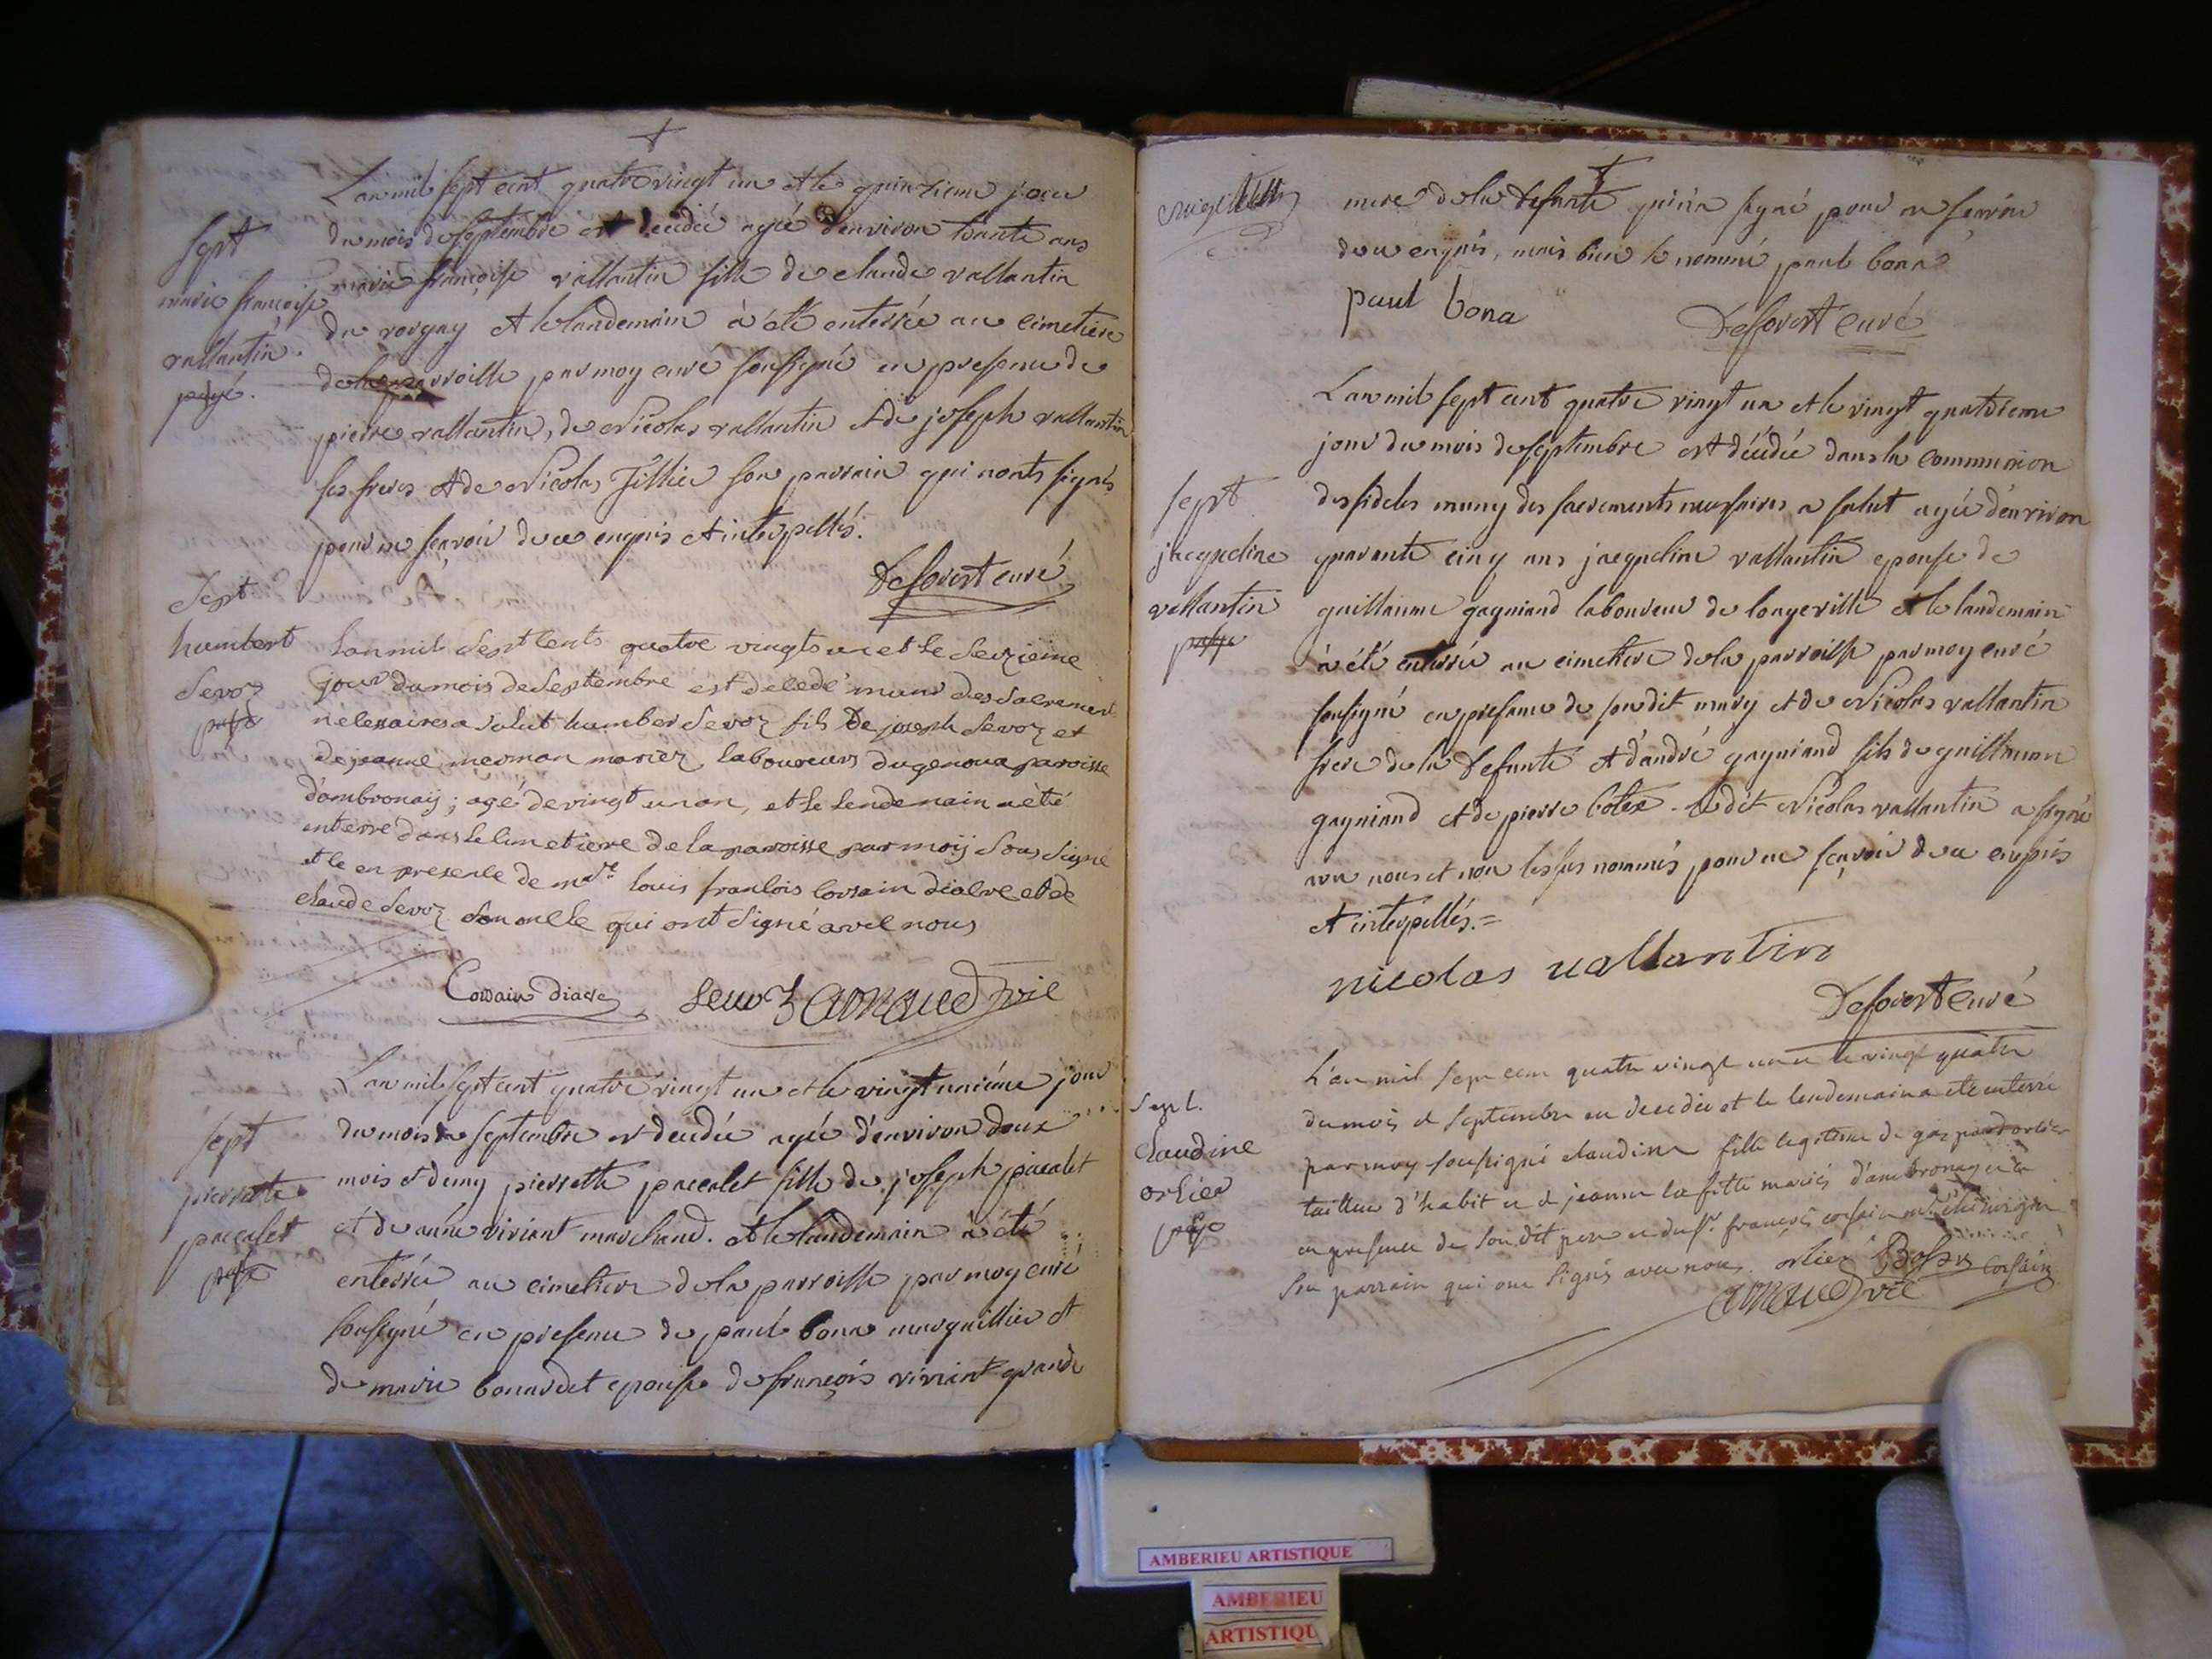 Lan mil sept cent quatre vingt un et le quinzieme jour
du mois de septembre est decedée agée d'environ trante ans
marie françoise vallantin fille de claude vallantin
du vorgay et le landemain à été enterrée au cimetiere
de la parroisse par moy curé soussigné en presence de
pierre vallantin, de Nicolas vallantin et de joseph vallantin
ses freres et de Nicolas Tillier son parrain qui nonts signés
pour ne sçavoir de ce enquis et interpellés.
Desovert curé
sept
marie françoise
vallantin.
payé.
Lan mil sept cents quatre vingts un et le seizieme
jour du mois de septembre est decedé muni des sacrement
necessaires a salut humber sevoz fils de joseph sevoz et
de jeanne mermon mariez laboureurs du genoux paroisse
d'ambronaij; agé de vingt un an, et le lendemain a été
enterré dans le cimetiere de la paroisse par moij sous signé
et ce en presence de mtre louis francois corsain diacre et de
claude sevoz son oncle qui ont signé avec nous
Corsain diacre sevoz arnaud vic
Sept
humbert
sevoz
payé
Lan mil sept cent quatre vingt un et le vingt unième jour
du mois de septembre est decedée agée d'environ deux
mois et demy pierrette paccalet fille de joseph paccalet
et de anne viviant marchand. et le landemain à été
enterrée au cimetiere de la parroisse par moy curé
soussigné en presence de paul bona marguillier et
de marie bonardet epouse de françois viviant grande
sept
pierrette
paccalet
payé
mere de la defunte qui n'a signé pour ne sçavoir
de ce enquis, mais bien le nommé paul bona
paul bona
Desovert curé
Lan mil sept cent quatre vingt un et le vingt quatrieme
jour du mois de septembre est décédée dans la communion
des fideles muny des sacrements necessaires a salut agée d'environ
quarante cinq ans jacqueline vallantin epouse de
guillaume gagniand laboureur de longeville et le landemain
à été enterrée au cimetiere de la parroisse par moy curé
soussigné en presence de son dit mary et de Nicolas vallantin
frere de la defunte et d'andré gagniand fils de guillaume
gagniand et de pierre bolex. le dit Nicolas vallantin a signé
avec nous et non les sus nommés pour ne sçavoir de ce enquis
et interpellés. =
nicolas vallantin
Desovert curé
sept
jacqueline
vallantin
payé
L'an mil sept cent quatre vingt un et le vingt quatre
du mois de septembre est decedée et le lendemain a été enterré
par moy soussigné claudine fille legitime de gaspard orlier
tailleur d'habit et de jeanne lafitte mariés d'ambronay et ce
en presence de son dit pere et du sr. françois corsain me chirurgien
son parrain qui ont signés avec nous. orlier corsain
arnaud vic
Sept.
claudine
orlier
payé
AMBERIEU ARTISTIQUE
AMBERIEU
ARTISTIQU